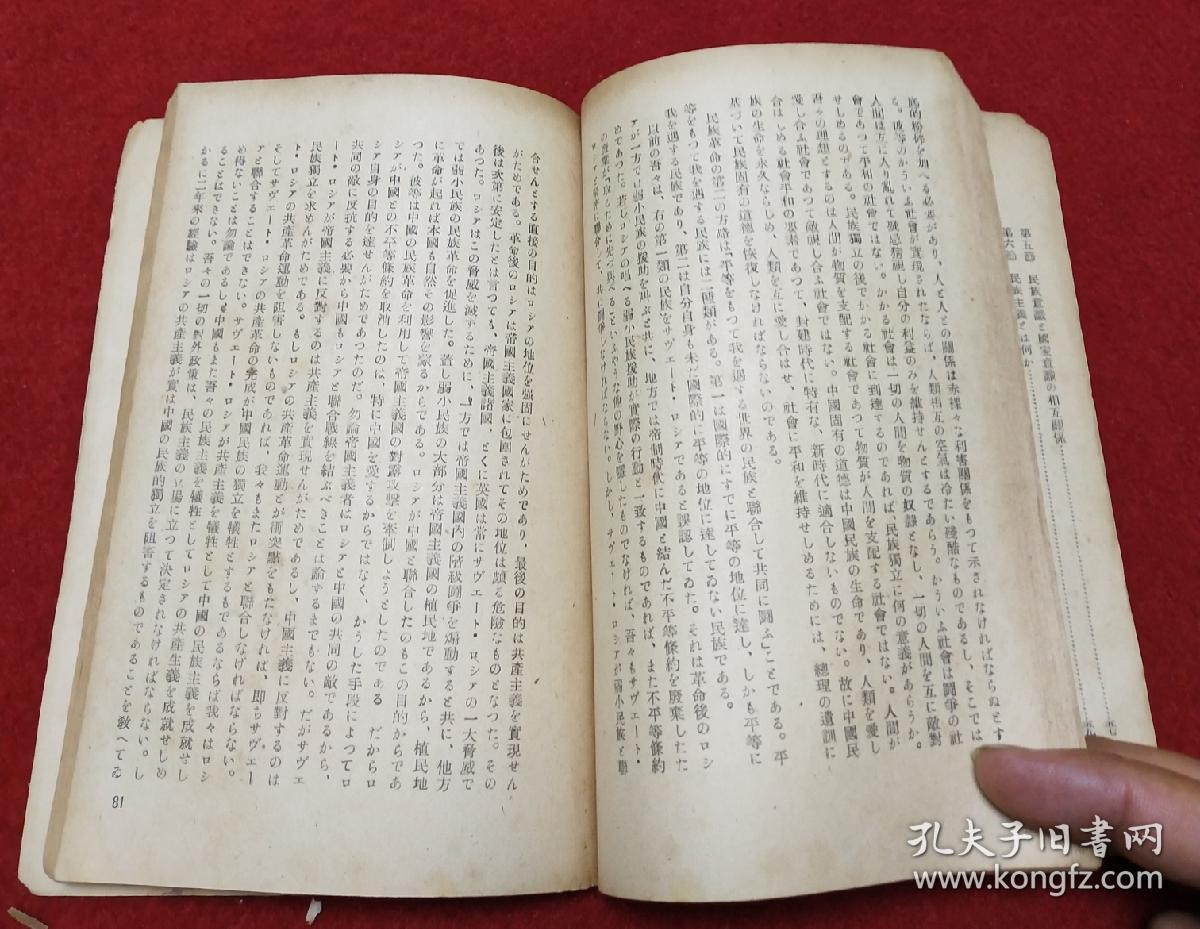 第五節 民族意識と國家意識の相互關係
第六節 民族主義とは何か
底的粉飾を加へる必要があり、人と人との關係は赤裸々な利害關係をもつて示されなければならぬとす
る。彼等のかういふ社會が實現されたならば、人類相互の空氣は冷たい殘酷なものであるし、そこでは
人間は互に入り亂れて疑忌猜視し自分の利益のみを維持せんとするであらう。かういふ社會は鬪爭の社
會であつて平和の社會ではない。かかる社會は一切の人間を物質の奴隸となし、一切の人間を互に敵對
せしめるのである。民族獨立の後でかかる社會に到達するのであれば民族獨立に何の意義があらうか。
吾々の理想とするものは人間が物質を支配する社會であつて物質が人間を支配する社會ではない。人間が
愛し合ふ社會であつて敵視し合ふ社會ではない。中國固有の道德は中國民族の生命であり、人類を愛し
合はしめる社會平和の要素であつて、封建時代に特有な、新時代に適合しないものでない。故に中國民
族の生命を永久ならしめ、人類を互に愛し合はせ、社會に平和を維持せしめるためには、總理の遺訓に
基づいて民族固有の道德を恢復しなければならないのである。
民族革命の第二の方略は「平等をもつて我を遇する世界の民族と聯合して共同に鬪ふ」ことである。平
等をもつて我を遇する民族には二種類がある。第一は國際的にすでに平等の地位に達し、しかも平等に
我を遇する民族であり、第二は自分自身も未だ國際的に平等の地位に達してゐない民族である。
以前の吾々は、右の第一類の民族をサヴェート・ロシアであると誤認してゐた。それは革命後のロシ
アが一方では弱小民族の援助を叫ぶと共に、地方では帝制時代に中國と結んだ不平等條約を廢棄したた
めであつた。若しロシアの唱へる弱小民族援助が實際の行動と一致するものであれば、また不平等條約
の廢棄が
ものでなければ、吾々もサヴェート・
ロシアと
しかし、サヴェート・ロシアが弱小民族と聯
合せんとする直接の目的はロシアの地位を强固にせんがためであり、最後の目的は共產主義を實現せん
がためである。革命後のロシアは帝國主義國家に包圍されてその地位は頗る危險なものとなつた。その
後は次第に安定したとは言つても、帝國主義諸國、とくに英國は常にサヴェート・ロシアの一大脅威で
あつた。ロシアはこの脅威を滅するために、一方では帝國主義國內の階級鬪爭を煽動すると共に、他方
では弱小民族の民族革命を促進した。蓋し弱小民族の大部分は帝國主義國の植民地であるから、植民地
に革命が起れば本國も自然その影響を蒙るからである。ロシアが中國と聯合したのもこの目的からであ
つた。彼等は中國の民族革命を利用して帝國主義國の對露攻擊を牽制しようとしたのである だからロ
シアが中國との不平等條約を取消したのは、特に中國を愛するからではなく、かうした手段によつてロ
シア自身の目的を達せんがためであつたのだ。勿論帝國主義者はロシアと中國の共同の敵であるから、
共同の敵に反抗する必要から中國もロシアと聯合戰線を結ぶべきことは論するまでもない。だがサヴェ
ート・ロシアが帝國主義に反對するのは共產主義を實現せんがためであるし、中國が帝國主義に反對するのは
民族獨立を求めんがためである。もしロシアの共產革命運動とが衝突點をもたなければ、即ちサヴェー
ト・ロシアの共產革命運動を阻害しないものであれば、我々もまたロシアと聯合しなければならない。
そしてサヴェート・ロシアの共產革命の完成が中國國民の獨立を犧牲とするものであるならば我々はロシ
アと聯合することはできない。サヴェート・ロシアが共產主義を犧牲として中國の民族主義を成就せし
め得ないことは勿論であるし、中國もまた吾々の民族主義を犧牲としてロシアの共產主義を成就せしめ
ることはできない。吾々の一切の對外政策は、民族主義の立場に立つて決定されなければならない。し
かるに二年來の經驗はロシアの共產主義が實は中國の民族的獨立を阻害するものであることを敎へてゐ
81
孔夫子旧书网
www.kongfz.com